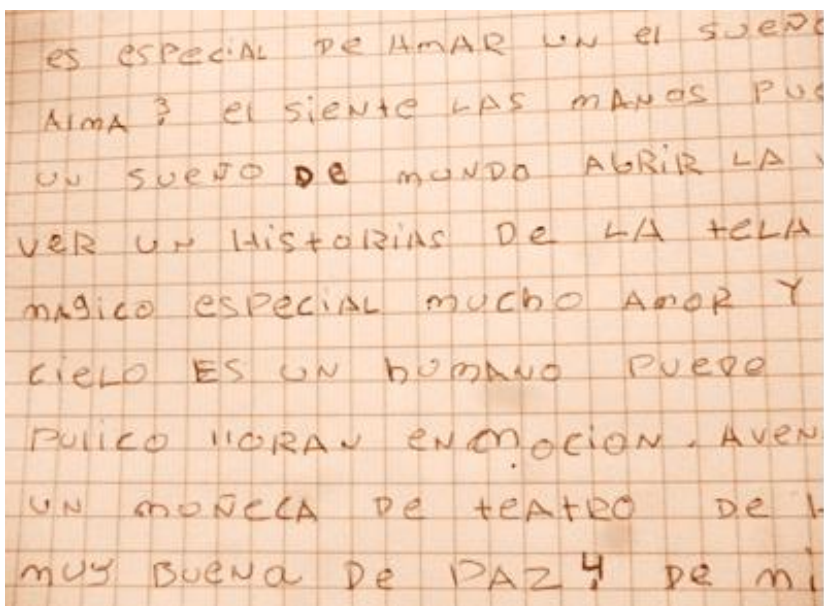 es especiAL De AmAR UN el sueño
AlmA? el sieNte LAS mANos pue
UN sueÑo De muNDo AbRiR LA
veR UN HistoRiAs De LA teLA
mAgico especiAL mucho AmoR Y
cieLo ES UN humANo puede
pulico lloRAN eNmocioN. AveN
UN moÑecA De teAtRo De
muy BueNa De PAZ y De mi